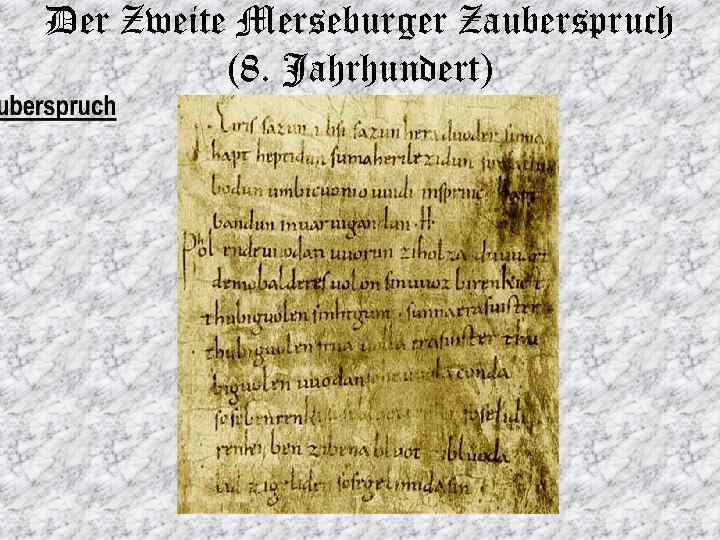 Der Zweite Merseburger Zauberspruch
(8. Jahrhundert)
uberspruch
Eiris sazun idisi sazun hera duoder suma
hapt heptidun sumaherilezidun
bodun umbicuonio uuidi insprinc hapt
bandun inuaruigandun .H.
Phol endeuuodan uuorun ziholza
demobalderes uolon sinuuoz birenkict
thubiguolen sinhtgunt . sunnaerasuister
thubiguolen friia uolla erasuister thu
biguolen uuodan sohe uuola conda
sosebenrenki sose lidi
renki ben zibena bluot zibluoda
lid zigeliden sosegelimida sin